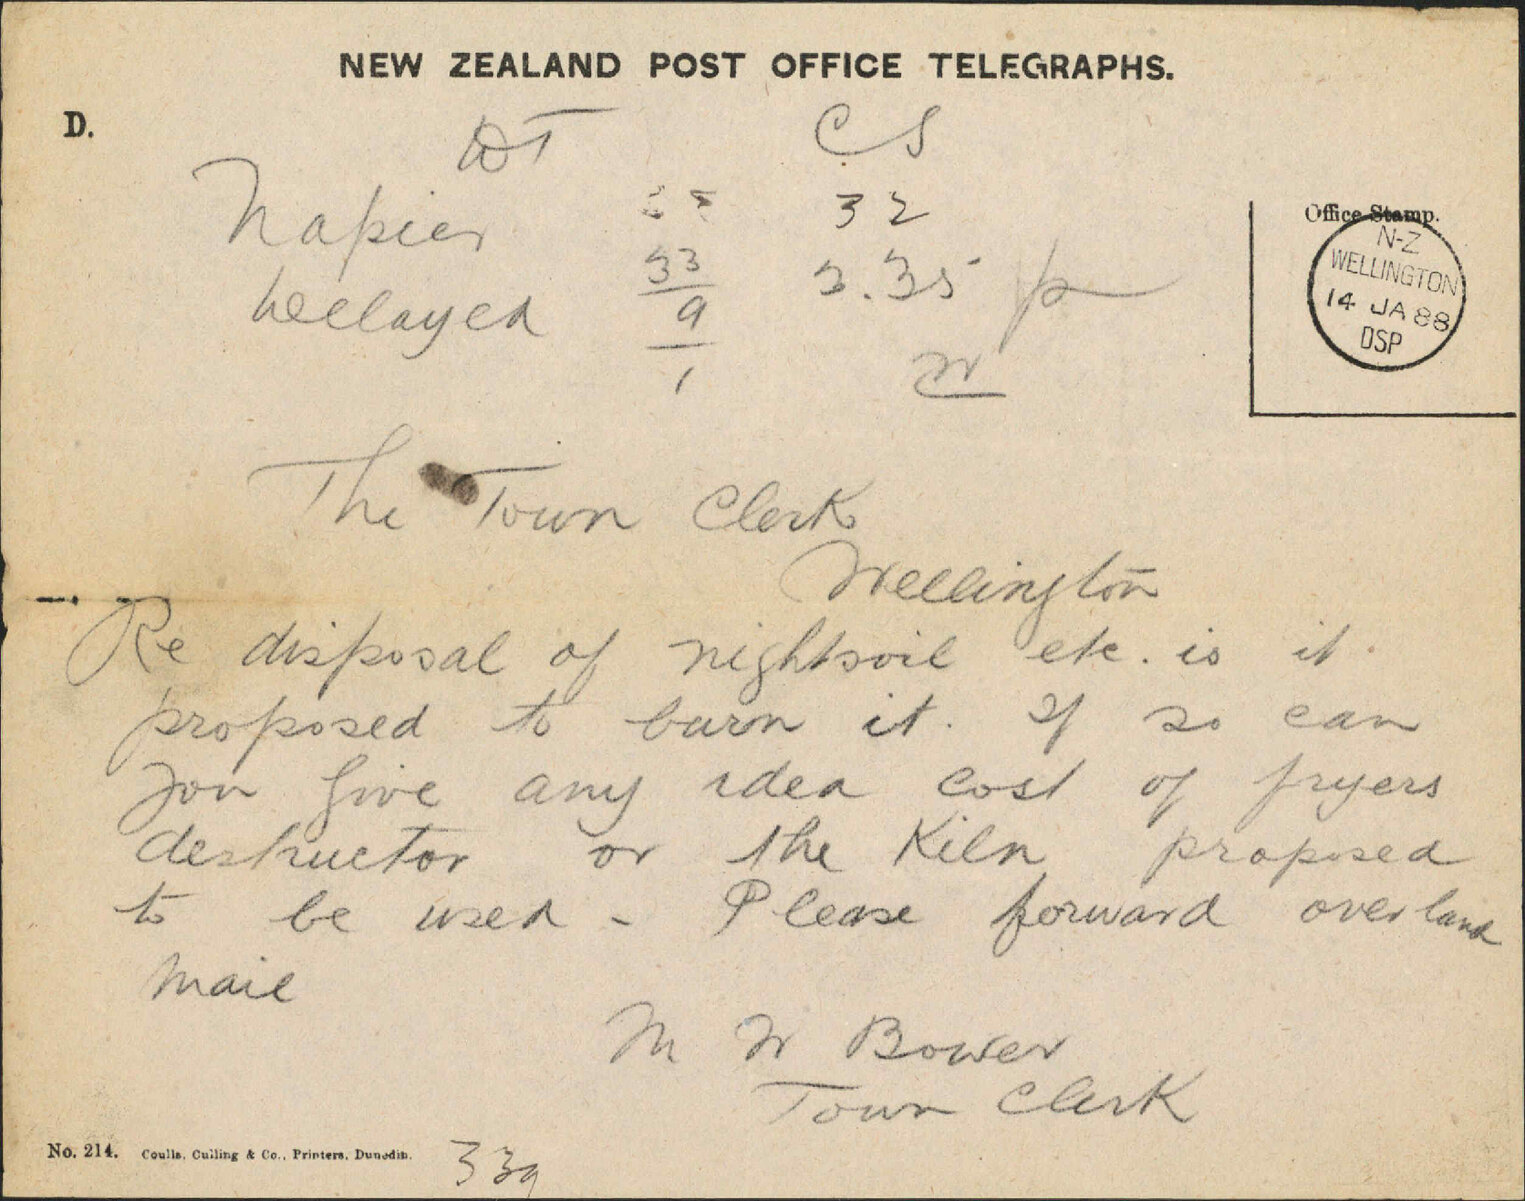 NEW ZEALAND POST OFFICE TELEGRAPHS.
D.
DT CS
Napier 32
33 3.35 p
Delayed 9
1 W
Office Stamp.
N-Z
WELLINGTON
14 JA 88
DSP
The Town Clerk
Wellington
Re disposal of nightsoil etc. is it
proposed to burn it. If so can
you give any idea cost of fryers
destructor or the Kiln proposed
to be used - Please forward overland
mail
M W Bower
Town Clerk
No. 214. Coulls, Culling & Co., Printers, Dunedin.